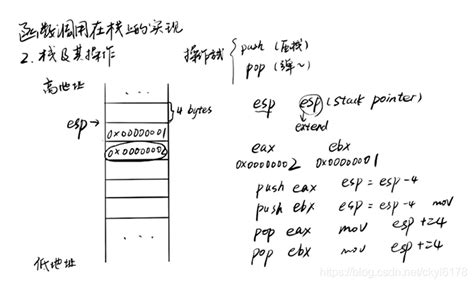 函数调用在栈上的实现
2. 栈及其操作
操作栈 { push (压栈)
pop (弹~)
高地址
...
4 bytes
esp →
0x00000001
0x00000002
...
低地址
esp esp (stack pointer)
extend
eax ebx
0x00000002 0x00000001
push eax esp = esp-4
push ebx esp = esp-4 mov
pop eax mov esp += 4
pop ebx mov esp += 4
https://blog.csdn.net/ckyl6178